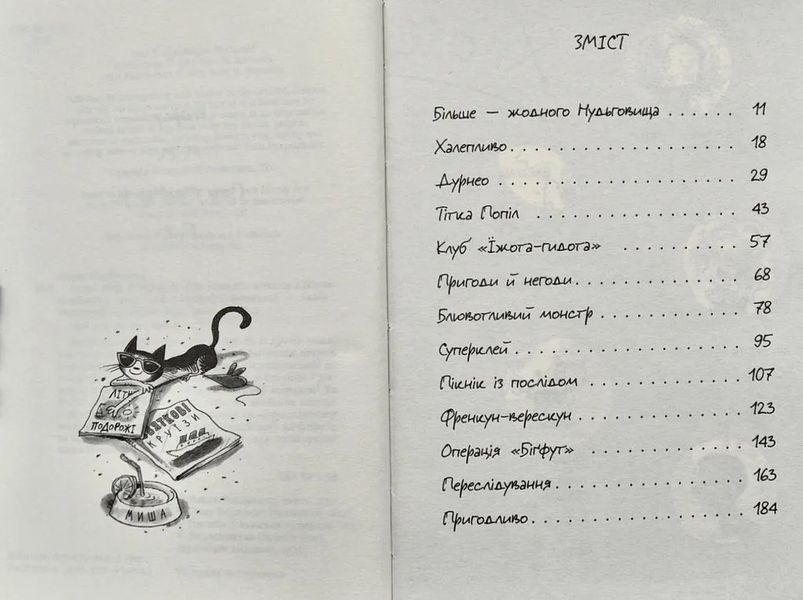 ЛІТН
ПОДОРОЖІ
КРУЇЗИ
МИША
ЗМІСТ
Більше — жодного Нудьговища . . . . . . 11
Халепливо . . . . . . . . . . . . . . . . . . 18
Дурнео . . . . . . . . . . . . . . . . . . . . 29
Тітка Попіл . . . . . . . . . . . . . . . . . 43
Клуб «Їжота-гидота» . . . . . . . . . . 57
Пригоди й негоди . . . . . . . . . . . . . 68
Блювотливий монстр . . . . . . . . . . . 78
Суперклей . . . . . . . . . . . . . . . . . . 95
Пікнік із послідом . . . . . . . . . . . . 107
Френкун-верескун . . . . . . . . . . . . 123
Операція «Бігфут» . . . . . . . . . . . . 143
Переслідування . . . . . . . . . . . . . . 163
Пригодливо . . . . . . . . . . . . . . . . . 184